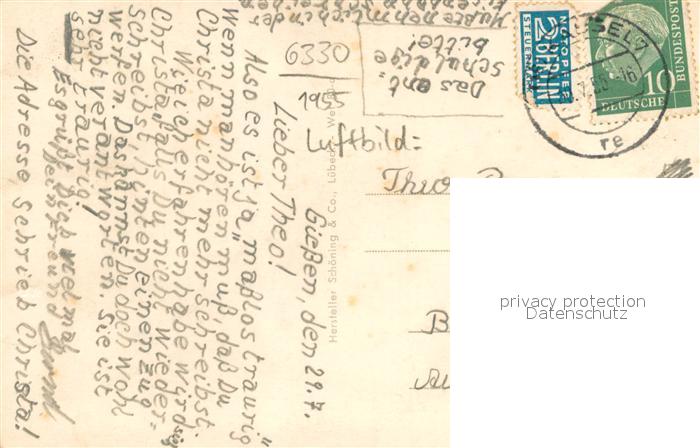 Gießen, den 29.7.
Lieber Theo!
Also es ist ja „maßlos traurig"
wenn man hören muß, daß Du
Christa nicht mehr schreibst.
Wie ich erfahren habe wird sich
Christa, falls Du nicht wieder
schreibst, hinter einen Zug
werfen. Das kannst Du doch wohl
nicht verantworten. Sie ist
sehr traurig!
Es grüßt Dich vielmals
Dein Freund
Die Adresse schrieb Christa!
Das ent
schuldige
bitte!
6330
1955
Luftbild:
Hersteller Schöning & Co., Lübeck
NOTOPFER
2 BERLIN
STEUERMARKE
DEUTSCHE
BUNDESPOST
10
re
Theo
B
privacy protection
Datenschutz